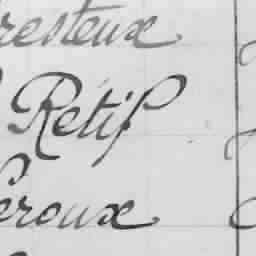 resteux
Rétif
eroux